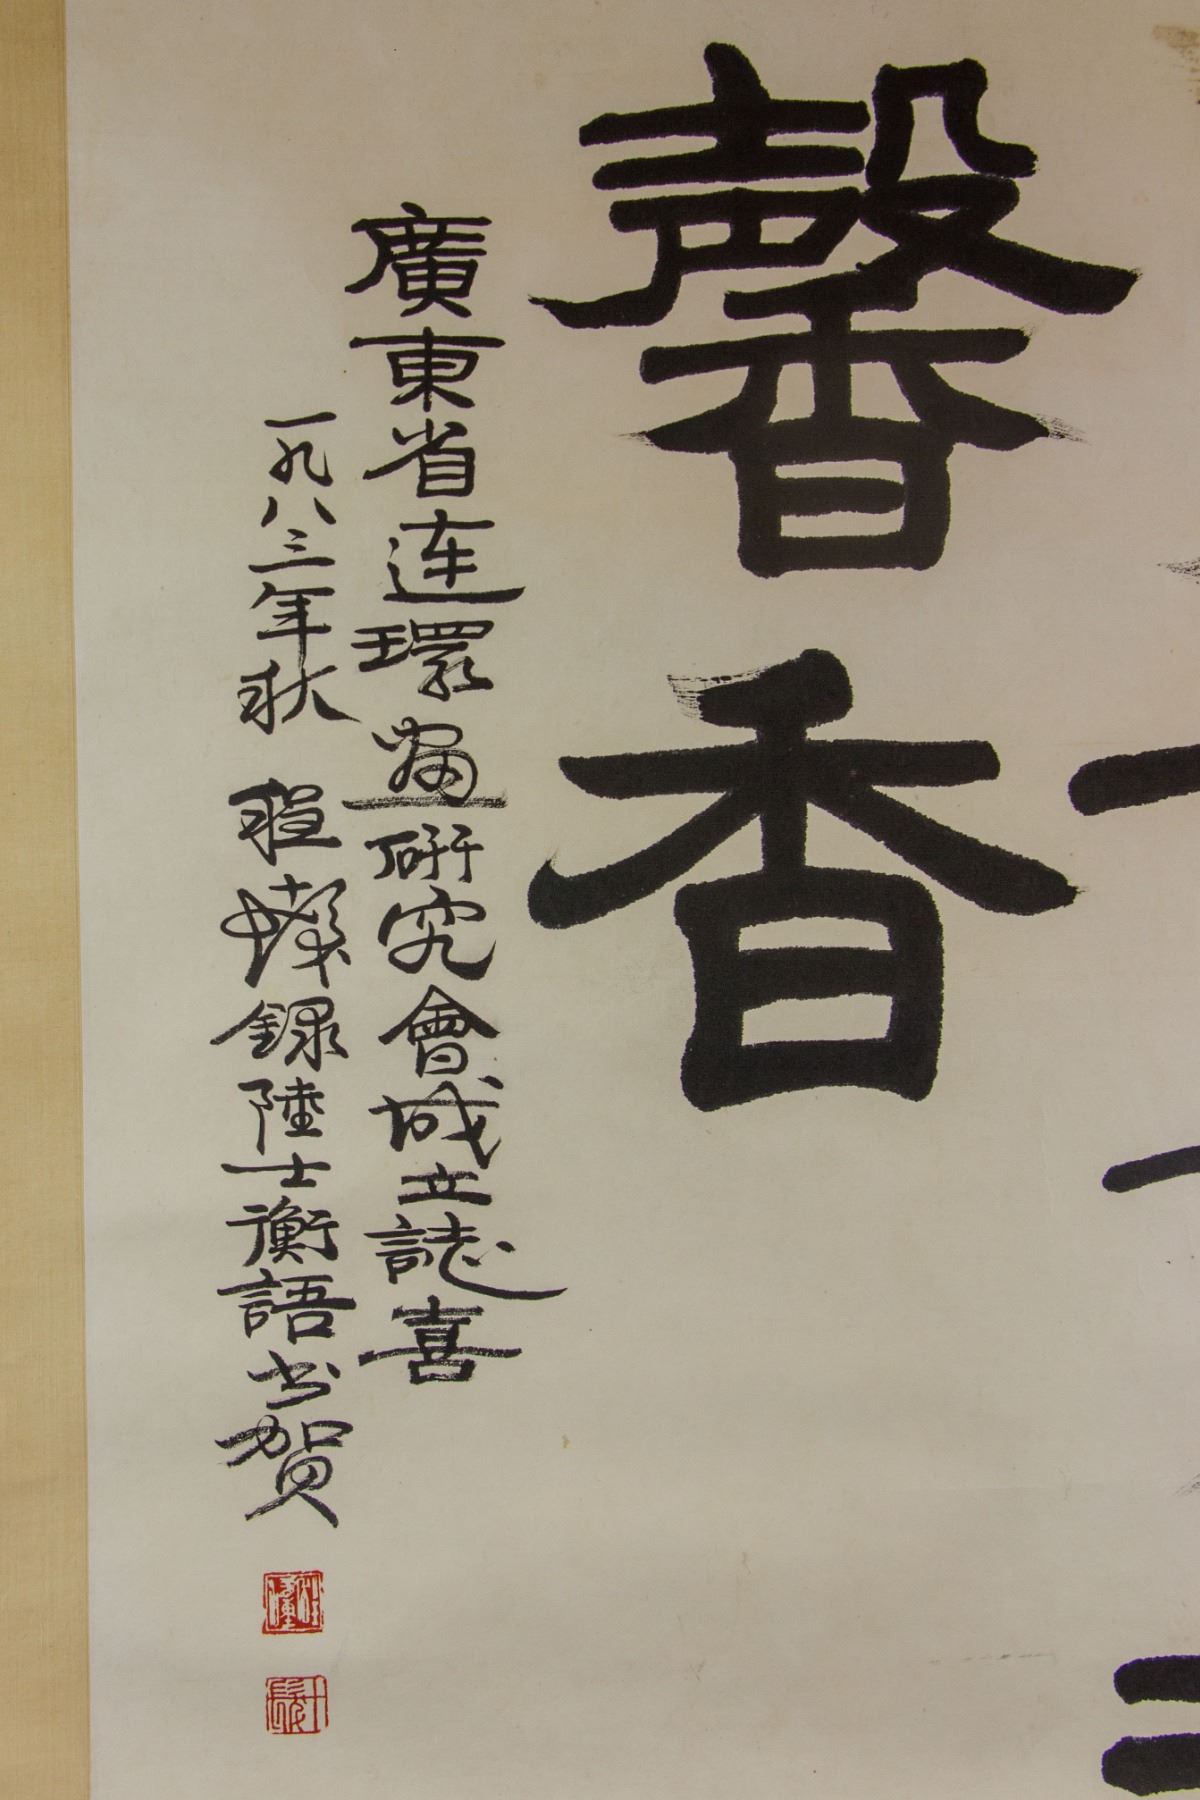 馨香
廣東省连環畫研究會成立誌喜
一九八三年秋 程十發録陸士衡語书贺